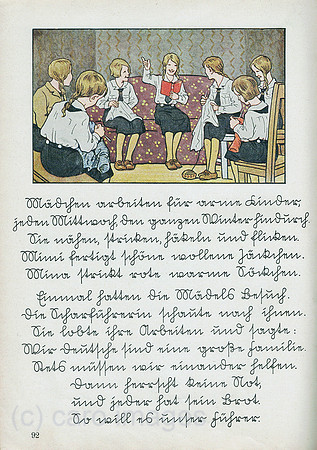 Mädchen arbeiten für arme Kinder,
jeden Mittwoch, den ganzen Winter hindurch.
Sie nähen, stricken, häkeln und flicken.
Mimi fertigt schöne wollene Jäckchen.
Mina strickt rote warme Söckchen.
Einmal hatten die Mädels Besuch.
Die Scharführerin schaute nach ihnen.
Sie lobte ihre Arbeiten und sagte:
Wir Deutsche sind eine große Familie.
Stets müssen wir einander helfen.
Dann herrscht keine Not,
und jeder hat sein Brot.
So will es unser Führer.
92